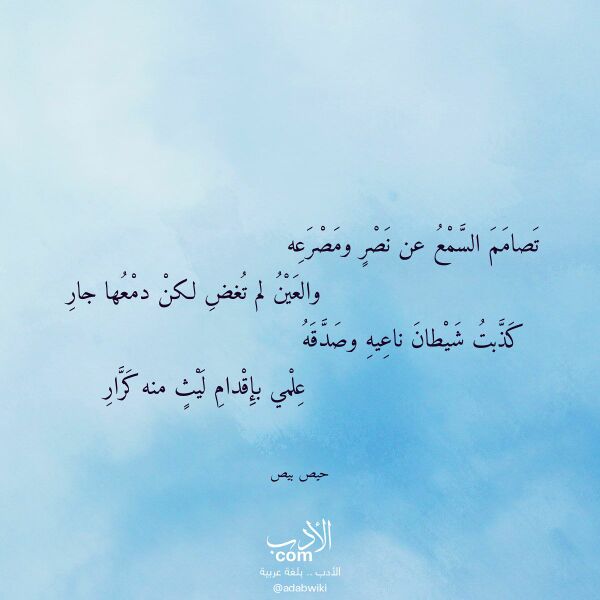 تَصامَمَ السَّمْعُ عن نَصْرٍ ومَصْرَعِه
والعَيْنُ لم تُغضِ لكنْ دمْعُها جارِ
كَذَّبتُ شَيْطانَ ناعِيهِ وصَدَّقَهُ
عِلْمي بإِقْدامِ لَيْثٍ منه كَرَّارِ
حيص بيص
الأدب
com
الأدب .. بلغة عربية
@adabwiki